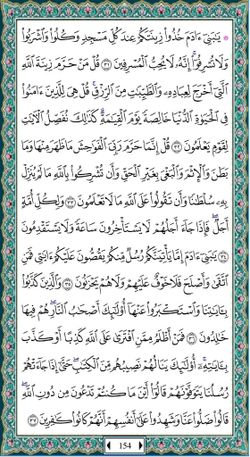 ۞ يَٰبَنِىٓ ءَادَمَ خُذُوا۟ زِينَتَكُمْ عِندَ كُلِّ مَسْجِدٍ وَكُلُوا۟ وَٱشْرَبُوا۟
وَلَا تُسْرِفُوٓا۟ إِنَّهُۥ لَا يُحِبُّ ٱلْمُسْرِفِينَ ۝٣١ قُلْ مَنْ حَرَّمَ زِينَةَ ٱللَّهِ
ٱلَّتِىٓ أَخْرَجَ لِعِبَادِهِۦ وَٱلطَّيِّبَٰتِ مِنَ ٱلرِّزْقِ قُلْ هِىَ لِلَّذِينَ ءَامَنُوا۟
فِى ٱلْحَيَوٰةِ ٱلدُّنْيَا خَالِصَةً يَوْمَ ٱلْقِيَٰمَةِ كَذَٰلِكَ نُفَصِّلُ ٱلْءَايَٰتِ
لِقَوْمٍ يَعْلَمُونَ ۝٣٢ قُلْ إِنَّمَا حَرَّمَ رَبِّىَ ٱلْفَوَٰحِشَ مَا ظَهَرَ مِنْهَا وَمَا
بَطَنَ وَٱلْإِثْمَ وَٱلْبَغْىَ بِغَيْرِ ٱلْحَقِّ وَأَن تُشْرِكُوا۟ بِٱللَّهِ مَا لَمْ يُنَزِّلْ
بِهِۦ سُلْطَٰنًا وَأَن تَقُولُوا۟ عَلَى ٱللَّهِ مَا لَا تَعْلَمُونَ ۝٣٣ وَلِكُلِّ أُمَّةٍ
أَجَلٌ فَإِذَا جَآءَ أَجَلُهُمْ لَا يَسْتَأْخِرُونَ سَاعَةً وَلَا يَسْتَقْدِمُونَ
۝٣٤ يَٰبَنِىٓ ءَادَمَ إِمَّا يَأْتِيَنَّكُمْ رُسُلٌ مِّنكُمْ يَقُصُّونَ عَلَيْكُمْ ءَايَٰتِى فَمَنِ
ٱتَّقَىٰ وَأَصْلَحَ فَلَا خَوْفٌ عَلَيْهِمْ وَلَا هُمْ يَحْزَنُونَ ۝٣٥ وَٱلَّذِينَ كَذَّبُوا۟
بِـَٔايَٰتِنَا وَٱسْتَكْبَرُوا۟ عَنْهَآ أُو۟لَٰٓئِكَ أَصْحَٰبُ ٱلنَّارِ هُمْ فِيهَا
خَٰلِدُونَ ۝٣٦ فَمَنْ أَظْلَمُ مِمَّنِ ٱفْتَرَىٰ عَلَى ٱللَّهِ كَذِبًا أَوْ كَذَّبَ
بِـَٔايَٰتِهِۦٓ أُو۟لَٰٓئِكَ يَنَالُهُمْ نَصِيبُهُم مِّنَ ٱلْكِتَٰبِ حَتَّىٰٓ إِذَا جَآءَتْهُمْ
رُسُلُنَا يَتَوَفَّوْنَهُمْ قَالُوٓا۟ أَيْنَ مَا كُنتُمْ تَدْعُونَ مِن دُونِ ٱللَّهِ
قَالُوا۟ ضَلُّوا۟ عَنَّا وَشَهِدُوا۟ عَلَىٰٓ أَنفُسِهِمْ أَنَّهُمْ كَانُوا۟ كَٰفِرِينَ ۝٣٧
154